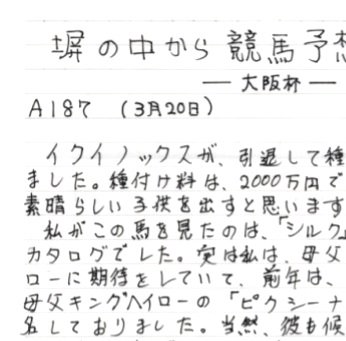 塀の中から競馬予想
― 大阪杯 ―
A187 （3月20日）
イクイノックスが、引退して種
ました。種付け料は、2000万円で
素晴らしい子供を出すと思います
私がこの馬を見たのは、「シルク
カタログでした。実は私は、母父
ローに期待をしていて、前年は、
母父キングヘイローの「ピクシーナ
名しておりました。当然、彼も候